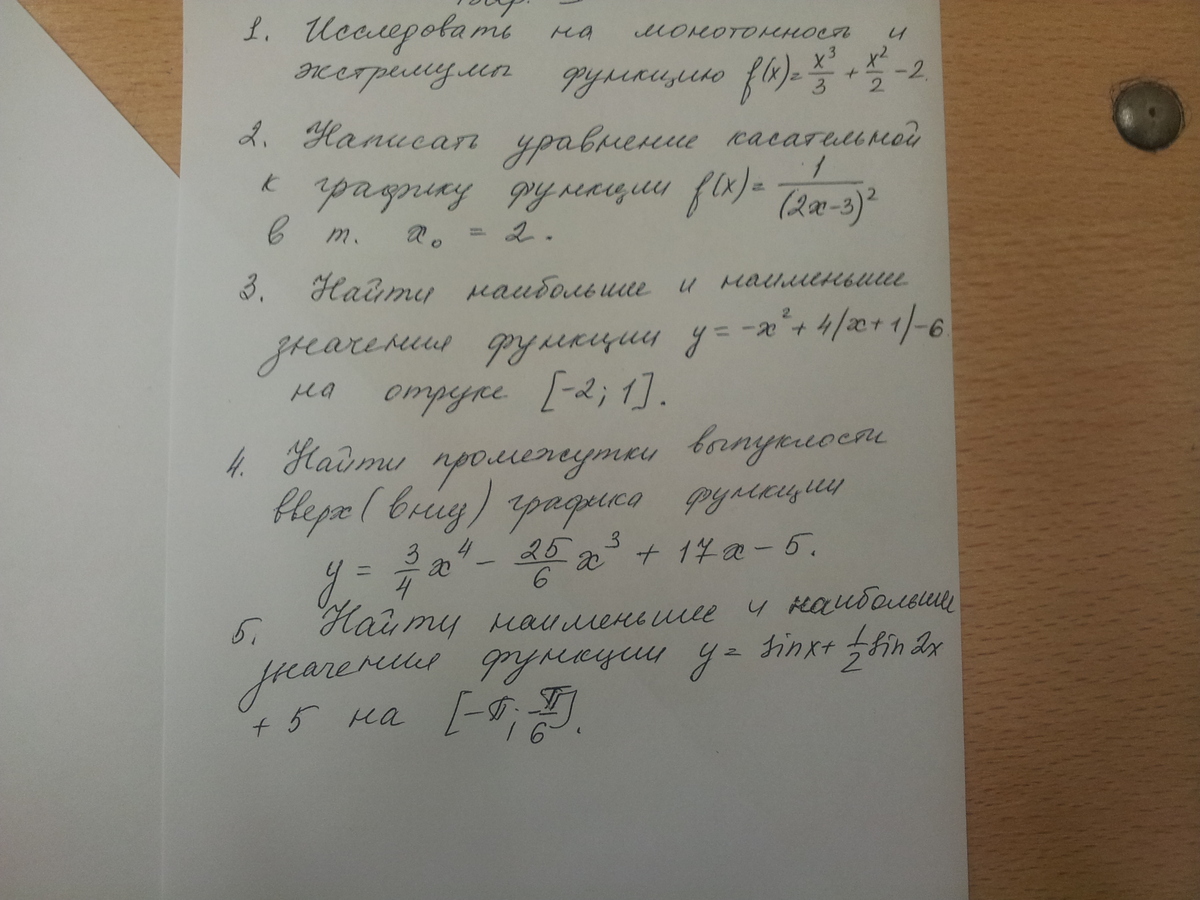 1. Исследовать на монотонность и
экстремумы функцию f(x)= x³/3 + x²/2 - 2.
2. Написать уравнение касательной
к графику функции f(x)= 1/(2x-3)²
в т. x₀ = 2.
3. Найти наибольшие и наименьшие
значения функции y = -x² + 4|x+1|-6
на отрузке [-2; 1].
4. Найти промежутки выпуклости
вверх (вниз) графика функции
y = 3/4 x⁴ - 25/6 x³ + 17x - 5.
5. Найти наименьшее и наибольшее
значения функции y = sinx + 1/2 sin2x
+ 5 на [-π; -π/6].